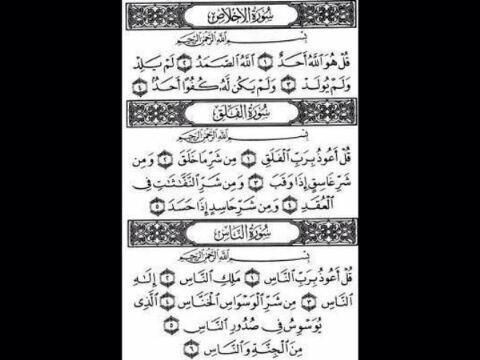 سُورَةُ الإِخْلَاصِ
بِسْمِ ٱللَّهِ ٱلرَّحْمَٰنِ ٱلرَّحِيمِ
قُلْ هُوَ ٱللَّهُ أَحَدٌ ۝١ ٱللَّهُ ٱلصَّمَدُ ۝٢ لَمْ يَلِدْ
وَلَمْ يُولَدْ ۝٣ وَلَمْ يَكُن لَّهُۥ كُفُوًا أَحَدٌۢ ۝٤
سُورَةُ الفَلَقِ
بِسْمِ ٱللَّهِ ٱلرَّحْمَٰنِ ٱلرَّحِيمِ
قُلْ أَعُوذُ بِرَبِّ ٱلْفَلَقِ ۝١ مِن شَرِّ مَا خَلَقَ ۝٢ وَمِن
شَرِّ غَاسِقٍ إِذَا وَقَبَ ۝٣ وَمِن شَرِّ ٱلنَّفَّٰثَٰتِ فِى
ٱلْعُقَدِ ۝٤ وَمِن شَرِّ حَاسِدٍ إِذَا حَسَدَ ۝٥
سُورَةُ النَّاسِ
بِسْمِ ٱللَّهِ ٱلرَّحْمَٰنِ ٱلرَّحِيمِ
قُلْ أَعُوذُ بِرَبِّ ٱلنَّاسِ ۝١ مَلِكِ ٱلنَّاسِ ۝٢ إِلَٰهِ
ٱلنَّاسِ ۝٣ مِن شَرِّ ٱلْوَسْوَاسِ ٱلْخَنَّاسِ ۝٤ ٱلَّذِى
يُوَسْوِسُ فِى صُدُورِ ٱلنَّاسِ ۝٥
مِنَ ٱلْجِنَّةِ وَٱلنَّاسِ ۝٦